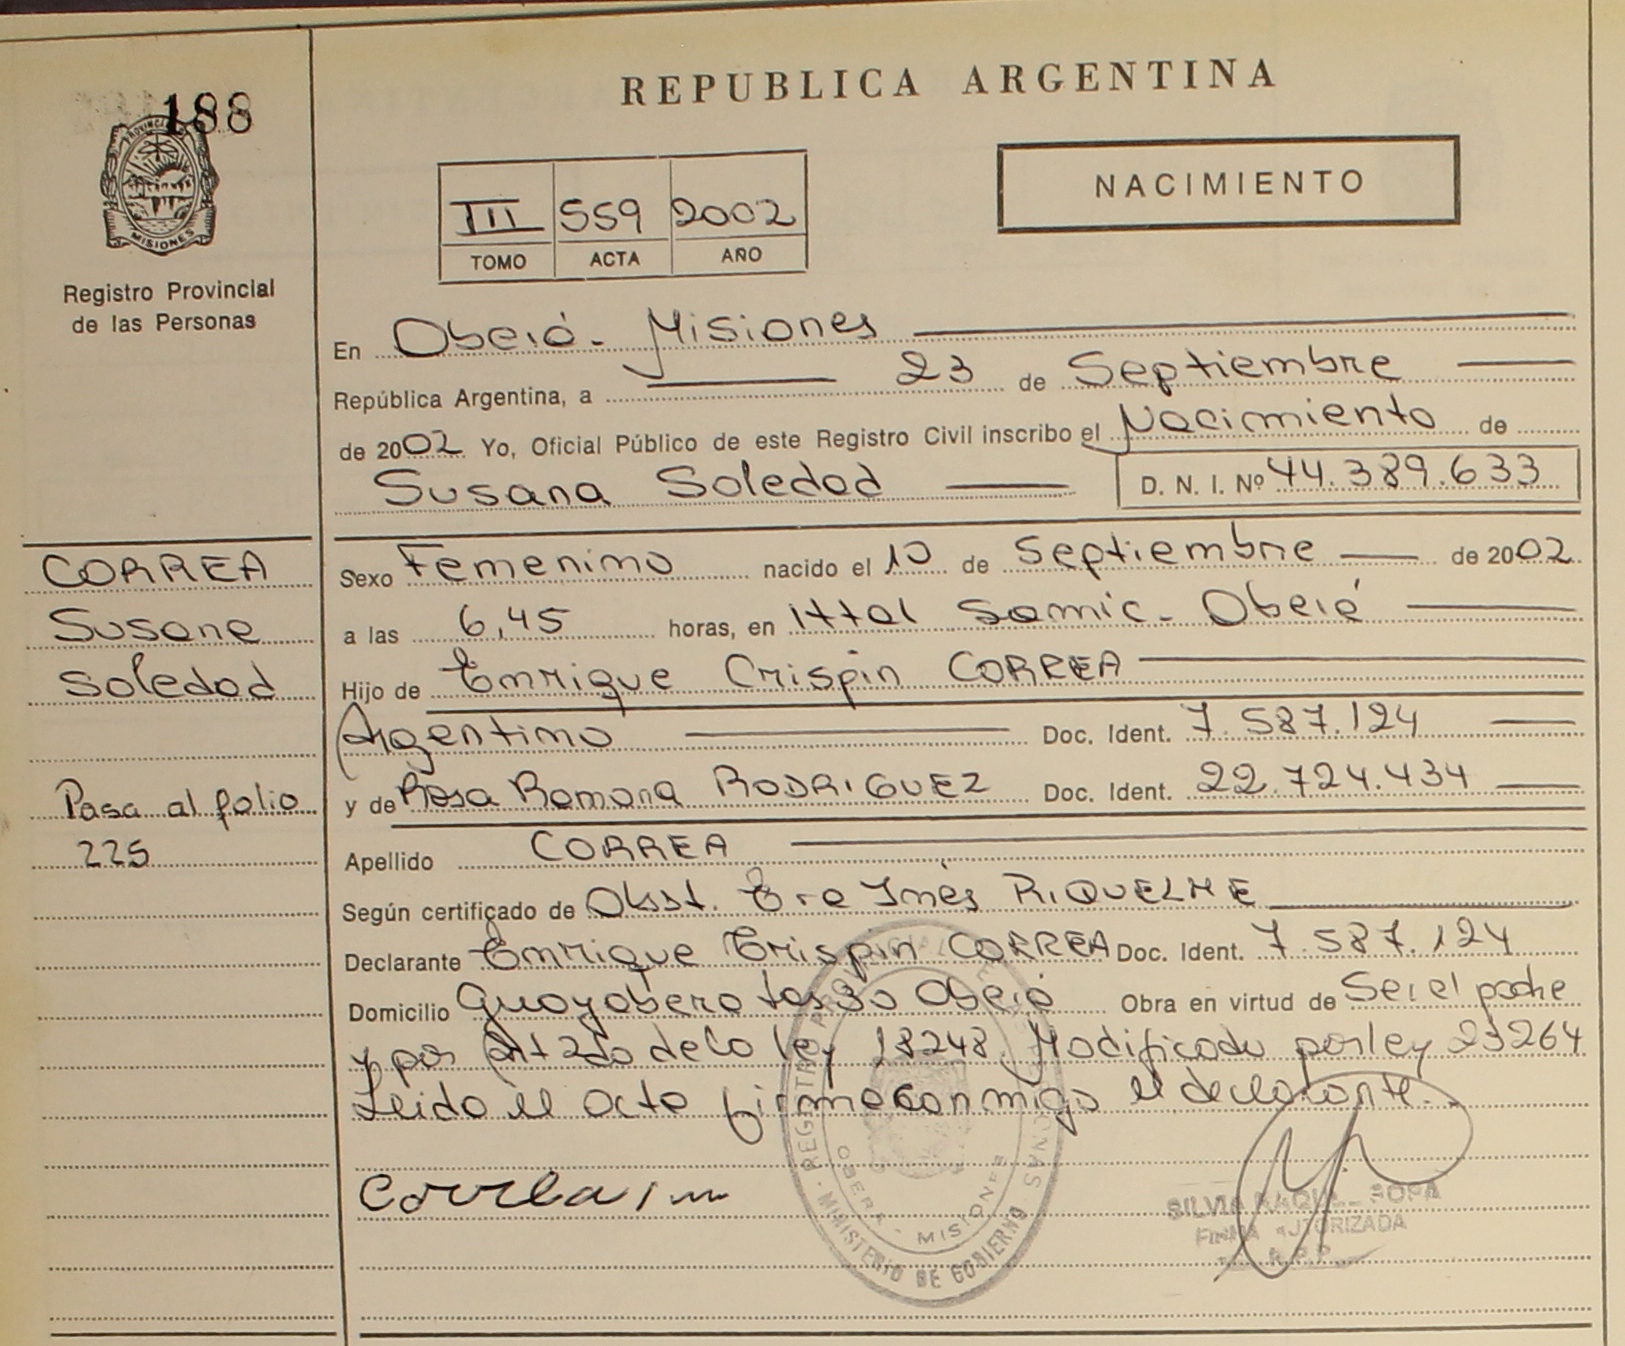 REPUBLICA ARGENTINA
188
PROVINCIA
MISIONES
Registro Provincial
de las Personas
NACIMIENTO
III 559 2002
TOMO ACTA AÑO
En Oberá - Misiones
República Argentina, a 23 de Septiembre
de 2002 Yo, Oficial Público de este Registro Civil inscribo el Nacimiento de
Susana Soledad D. N. I. Nº 44.389.633
CORREA
Susana
Soledad
Pasa al folio
225
Sexo Femenino nacido el 10 de Septiembre de 2002
a las 6,45 horas, en Httal Samic - Oberá
Hijo de Enrique Crispin CORREA
Argentino Doc. Ident. 7.587.124
y de Rosa Ramona RODRIGUEZ Doc. Ident. 22.724.434
Apellido CORREA
Según certificado de Obst. Inés RIQUELME
Declarante Enrique Crispin CORREA Doc. Ident. 7.587.124
Domicilio Oberá Obra en virtud de Ser el padre
y por Art 2do de la ley 18248. Modificado por ley 23264
Leido el acta firma conmigo el declarante.
Correa
REGISTRO PROVINCIAL DE LAS PERSONAS
OBERA - MISIONES
MINISTERIO DE GOBIERNO
SILVIA RAQUEL
FIRMA AUTORIZADA
R.P.P.